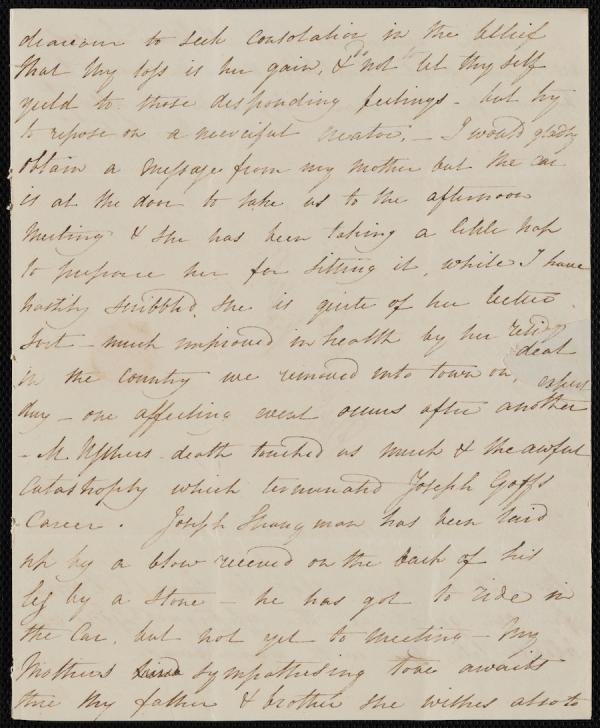 deavour to seek consolation in the belief
that thy loss is her gain, & do not let thyself
yield to those desponding feelings - but try
to repose on a merciful creator. - I would gladly
obtain a message from my mother but the car
is at the door to take us to the afternoon
Meeting & she has been taking a little nap
to prepare her for sitting it, while I have
hastily scribbled. she is quite of her better
sort - much improved in health by her
in the country we removed into town on
day - one affecting event occurs after another
- M death touched us much & the awful
Catastrophy which terminated Joseph Goffs
Career. Joseph Strangman has been laid
up by a blow received on the back of his
leg by a stone - he has got to ride in
the Car, but not yet to meeting - My
Mothers kind sympathising love awaits
thee thy father & brother she wishes also to